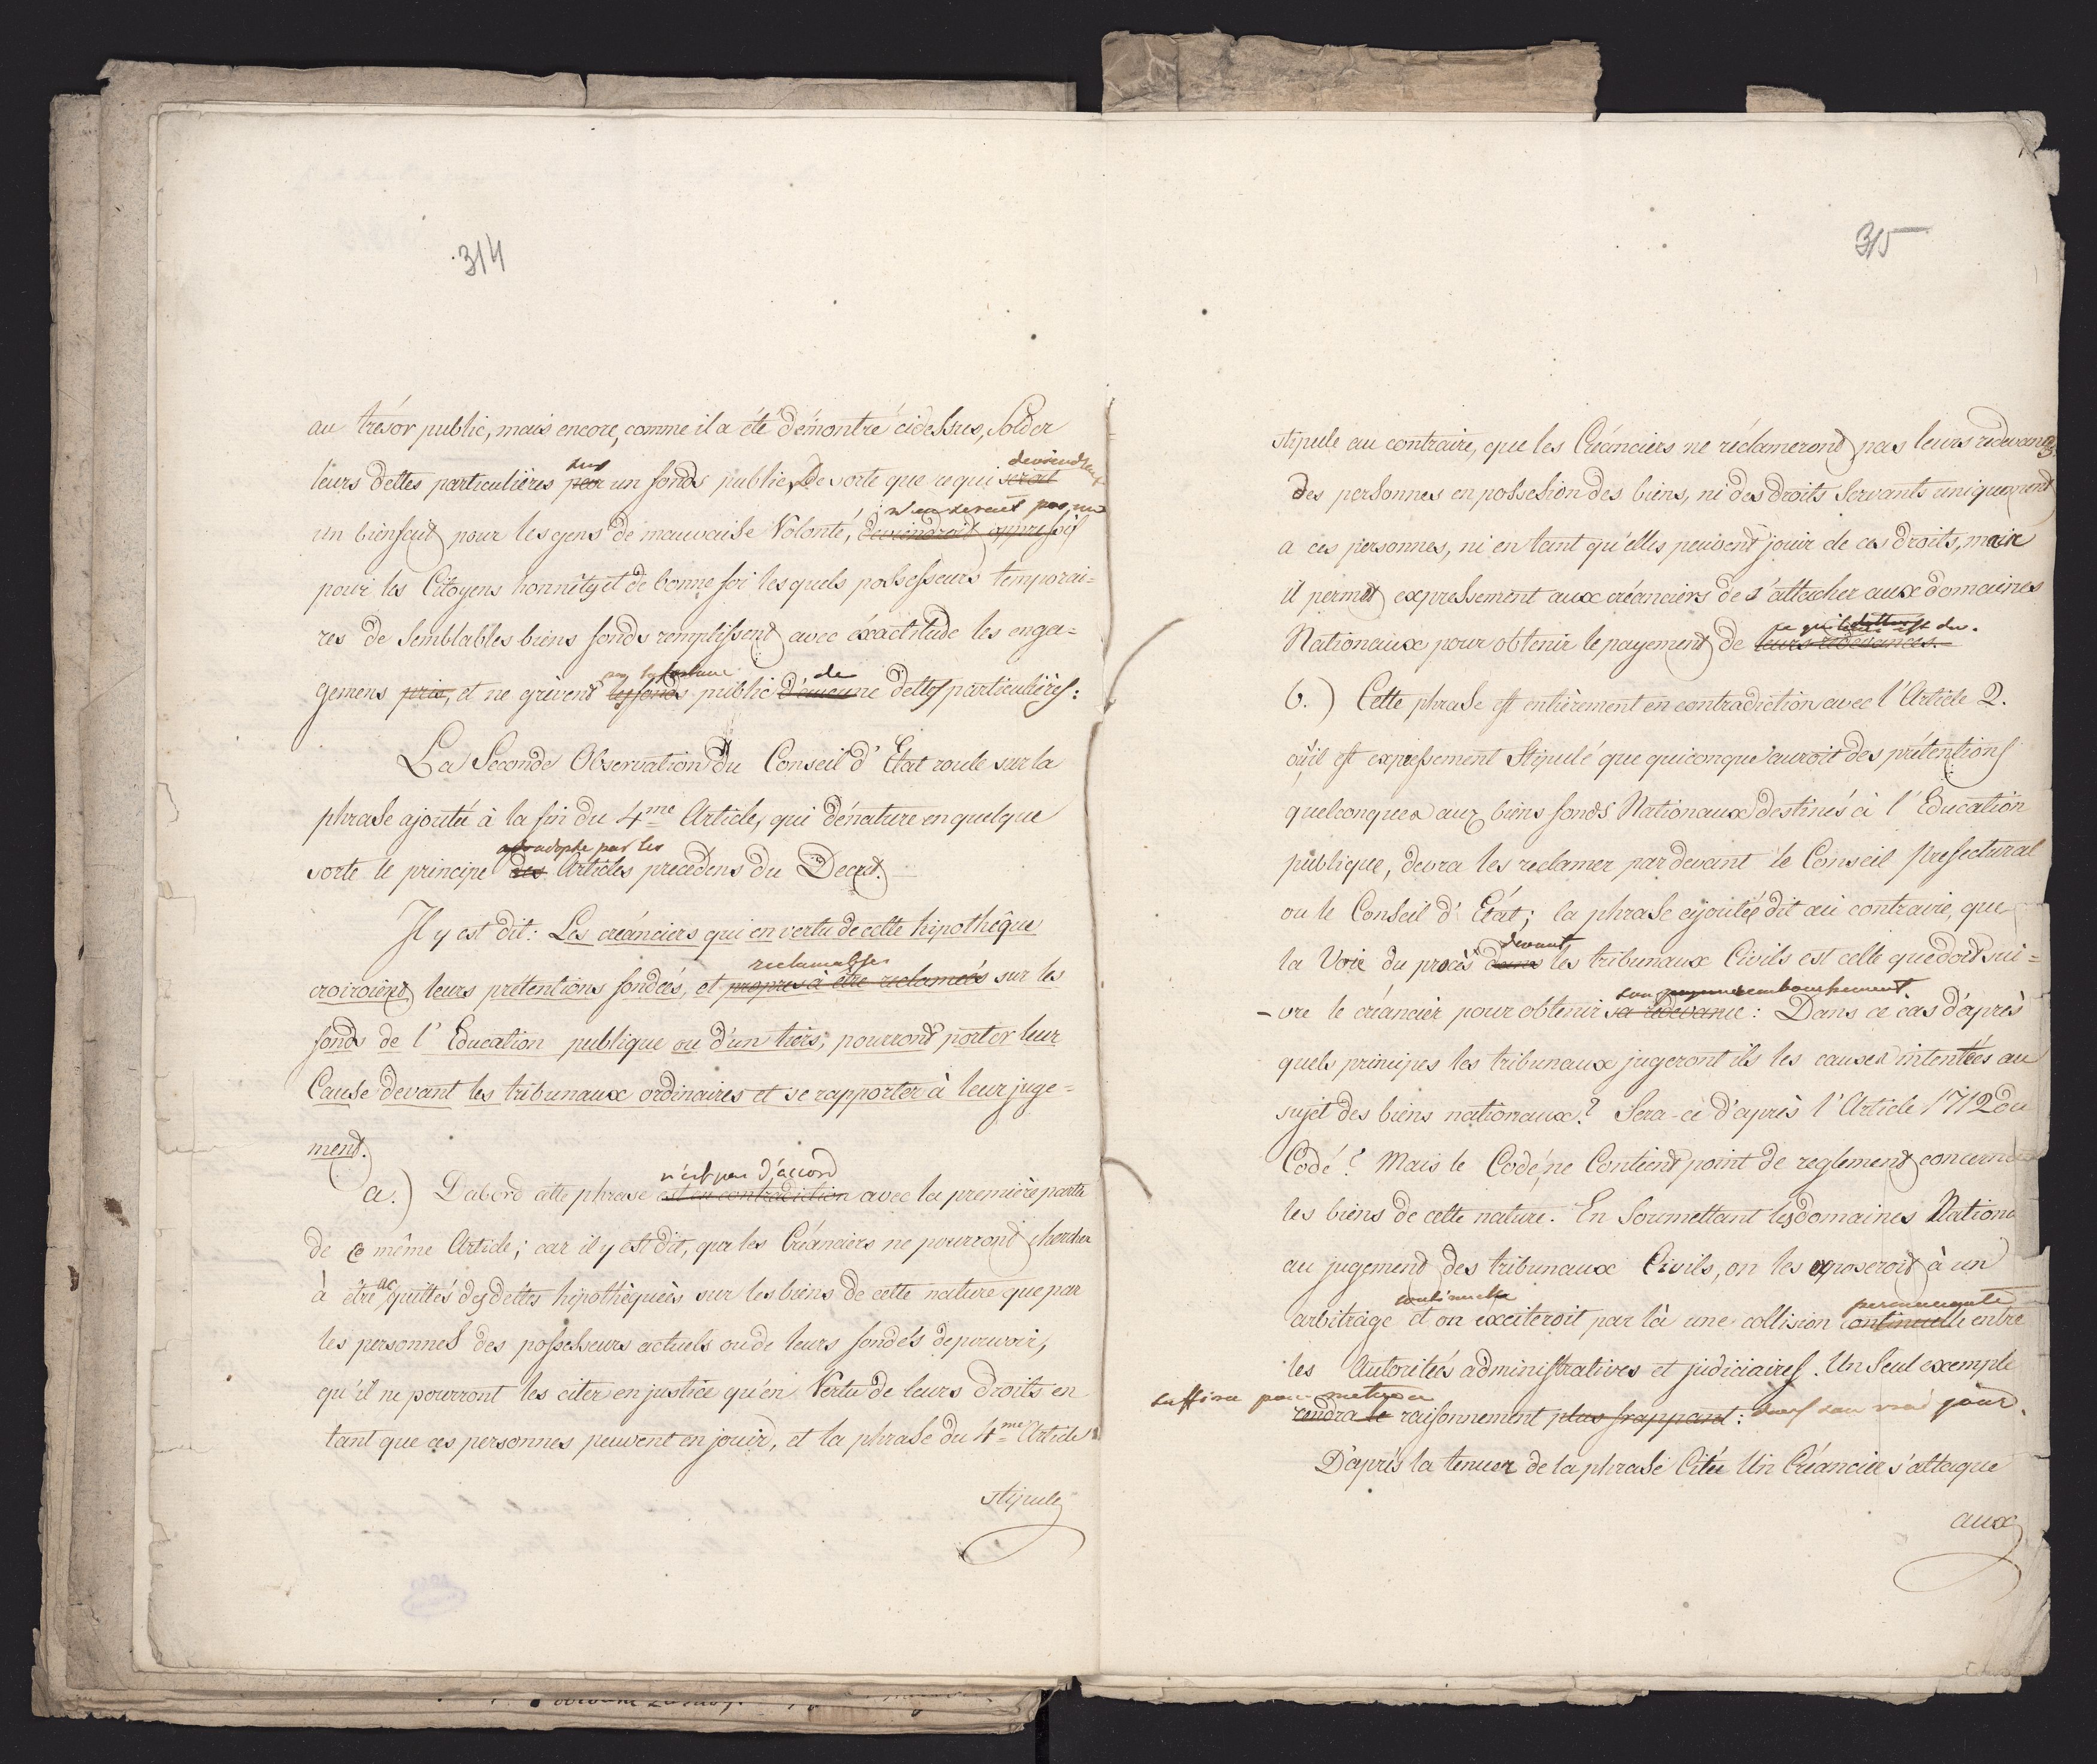 314
au trésor public, mais encore, comme il a été démontré cidessus, solder
sur devriendrait
leurs dettes particulières par un fonds public, De sorte que ce qui serait
n'en serait pas un
un bienfait pour les gens de mauvaise Volonté, deviendroit oppressif
pour les Citoyens honnêtes et de bonne foi lesquels possesseurs temporai=
res de semblables biens fonds remplissent avec éxactitude les enga=
de
gemens pris, et ne grèvent les fonds public d'aucune dettes particulières:
La Seconde Observation du Conseil d'Etat roule sur la
phrase ajoutée à la fin du 4me Article, qui dénature en quelque
adopté par les
sorte le principe des Articles précédens du Decret.
Il y est dit: Les créanciers qui en vertu de cette hipothêque
reclamables
croiroient leurs prétentions fondées, et propres à être reclamées sur les
fonds de l'Education publique ou d'un tiers, pourront porter leur
Cause devant les tribunaux ordinaires et se rapporter à leur juge=
ment.
n'est pas d'accord
a.) D'abord cette phrase est en contradiction avec la première partie
de ce même Article; car il y est dit, que les Créanciers ne pourront chercher
à être acquittés des dettes hipothèquées sur les biens de cette nature que par
les personnes des possesseurs actuels ou de leurs fondés de pouvoir,
qu'il ne pourront les citer en justice qu'en Vertu de leurs droits en
tant que ces personnes peuvent en jouir, et la phrase du 4me Article
stipule
315
stipule au contraire, que les Créanciers ne réclameront pas leurs redevances
des personnes en possession des biens, ni des droits servants uniquement
a ces personnes, ni en tant qu'elles peuvent jouir de ces droits, mais
il permet expressement aux créanciers de s'attacher aux domaines
ce qui est du.
Nationaux pour obtenir le payement de leurs redevances.
b.) Cette phrase est entièrement en contradiction avec l'Article 2.
où il est expressement Stipulé que quiconque auroit des prétentions
quelconques aux biens fonds Nationaux destinés à l'Education
publique, devra les reclamer par devant le Conseil Préfectural
ou le Conseil d'État; la phrase ajoutée dit au contraire, que
devant
la Voie du procès dans les tribunaux Civils est celle que doit sui=
son remboursement
-vre le créancier pour obtenir sa redevance: Dans ce cas d'après
quels principes les tribunaux jugeront ils les causes intentées au
sujet des biens nationaux? Sera-ce d'après l'Article 1712 du
Code? Mais le Code ne Contient point de reglement concernant
les biens de cette nature. En Soumettant les domaines Nationa
au jugement des tribunaux Civils, on les exposeroit à un
continuelle permanente
arbitrage et on exciteroit par là une collision continuelle entre
les Autorités administratives et judiciaires. Un Seul exemple
suffira pour mettre ce
rendra le raisonnement plus frappant: dans son vrai jour.
D'après la teneur de la phrase Citée Un Créancier s'attaque
aux